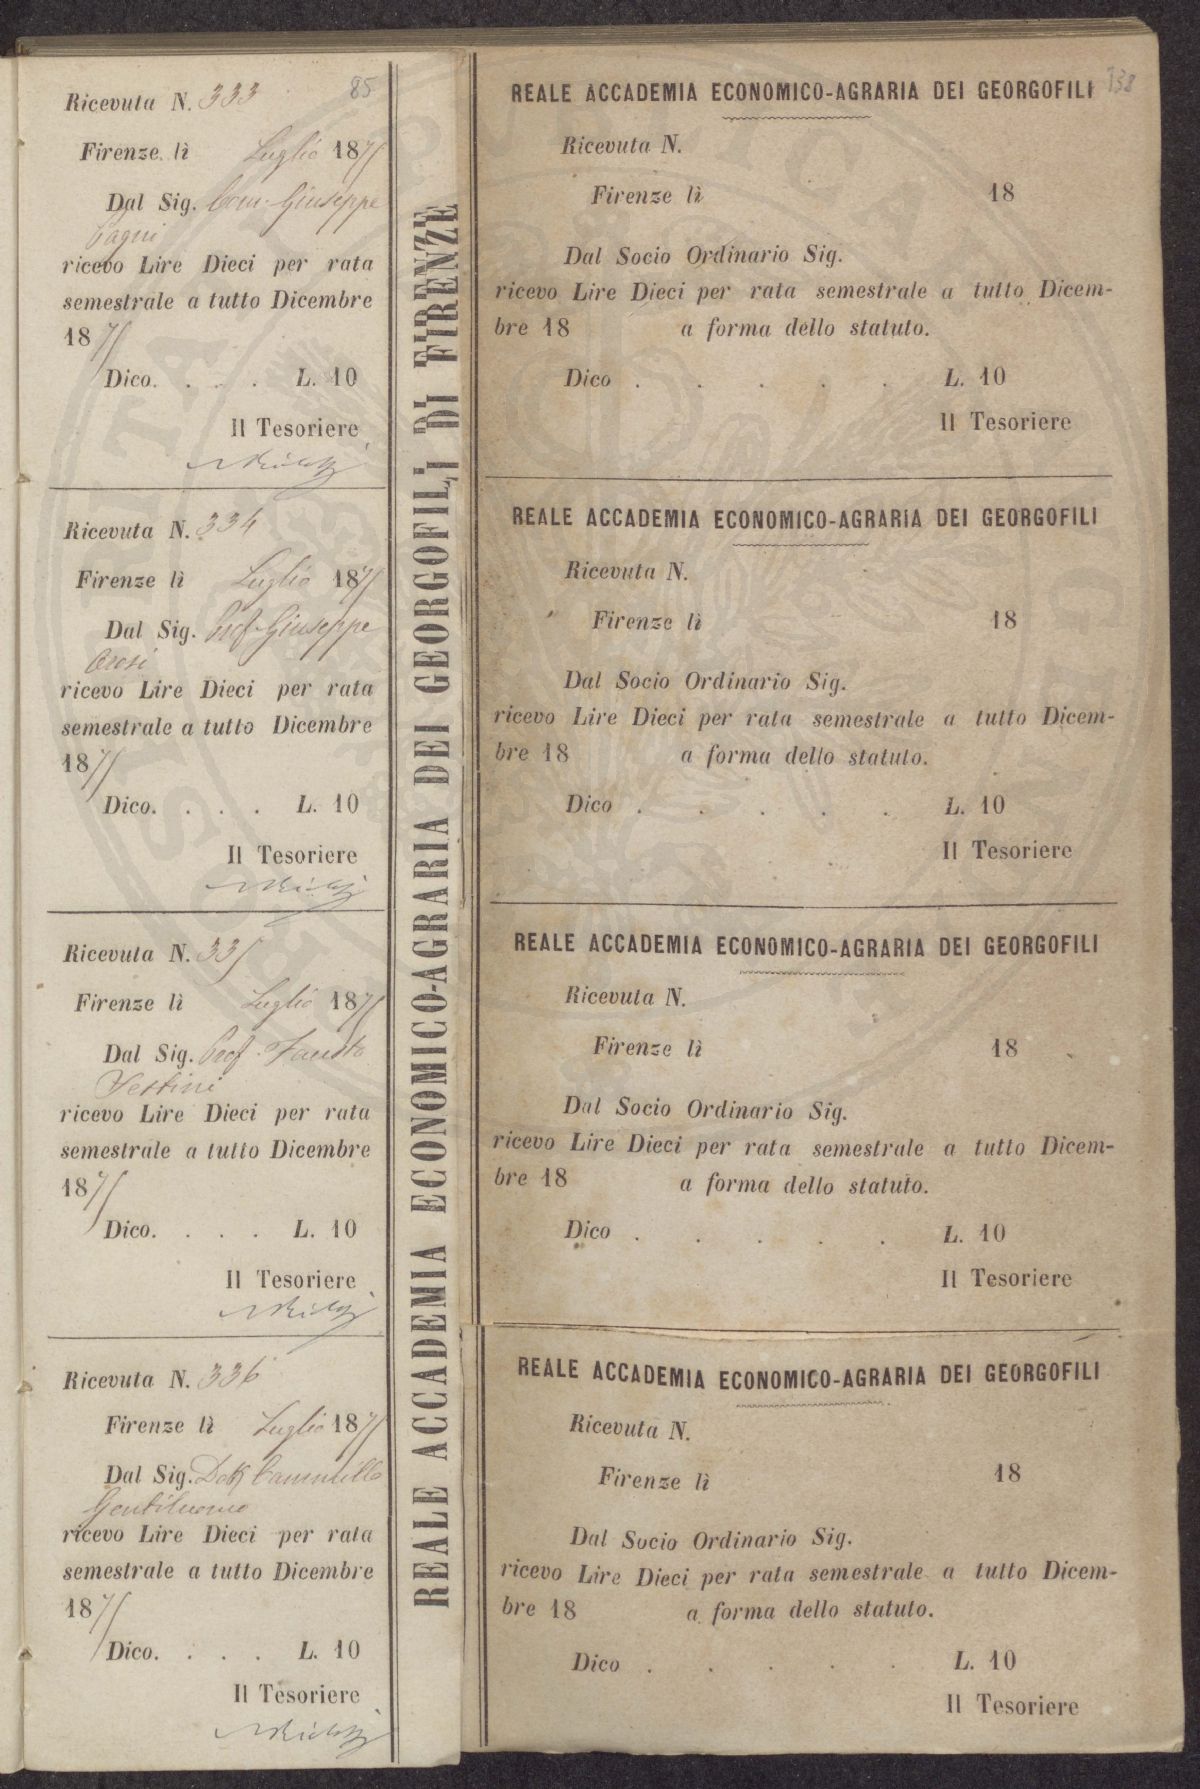 85
Ricevuta N. 333
Firenze lì Luglio 1875
Dal Sig. Com. Giuseppe
Pagni
ricevo Lire Dieci per rata
semestrale a tutto Dicembre
1875
Dico. . . . L. 10
Il Tesoriere
Ricevuta N. 334
Firenze lì Luglio 1875
Dal Sig. Prof. Giuseppe
Orosi
ricevo Lire Dieci per rata
semestrale a tutto Dicembre
1875
Dico. . . . L. 10
Il Tesoriere
Ricevuta N. 335
Firenze lì Luglio 1875
Dal Sig. Prof. Fausto
Sestini
ricevo Lire Dieci per rata
semestrale a tutto Dicembre
1875
Dico. . . . L. 10
Il Tesoriere
Ricevuta N. 336
Firenze lì Luglio 1875
Dal Sig. Dott Cammillo
Gentiluomo
ricevo Lire Dieci per rata
semestrale a tutto Dicembre
1875
Dico. . . . L. 10
Il Tesoriere
REALE ACCADEMIA ECONOMICO-AGRARIA DEI GEORGOFILI DI FIRENZE
DI FIRENZE
338
REALE ACCADEMIA ECONOMICO-AGRARIA DEI GEORGOFILI
Ricevuta N.
Firenze lì 18
Dal Socio Ordinario Sig.
ricevo Lire Dieci per rata semestrale a tutto Dicem-
bre 18 a forma dello statuto.
Dico . . . . . L. 10
Il Tesoriere
REALE ACCADEMIA ECONOMICO-AGRARIA DEI GEORGOFILI
Ricevuta N.
Firenze lì 18
Dal Socio Ordinario Sig.
ricevo Lire Dieci per rata semestrale a tutto Dicem-
bre 18 a forma dello statuto.
Dico . . . . . L. 10
Il Tesoriere
REALE ACCADEMIA ECONOMICO-AGRARIA DEI GEORGOFILI
Ricevuta N.
Firenze lì 18
Dal Socio Ordinario Sig.
ricevo Lire Dieci per rata semestrale a tutto Dicem-
bre 18 a forma dello statuto.
Dico . . . . . L. 10
Il Tesoriere
REALE ACCADEMIA ECONOMICO-AGRARIA DEI GEORGOFILI
Ricevuta N.
Firenze lì 18
Dal Socio Ordinario Sig.
ricevo Lire Dieci per rata semestrale a tutto Dicem-
bre 18 a forma dello statuto.
Dico . . . . . L. 10
Il Tesoriere